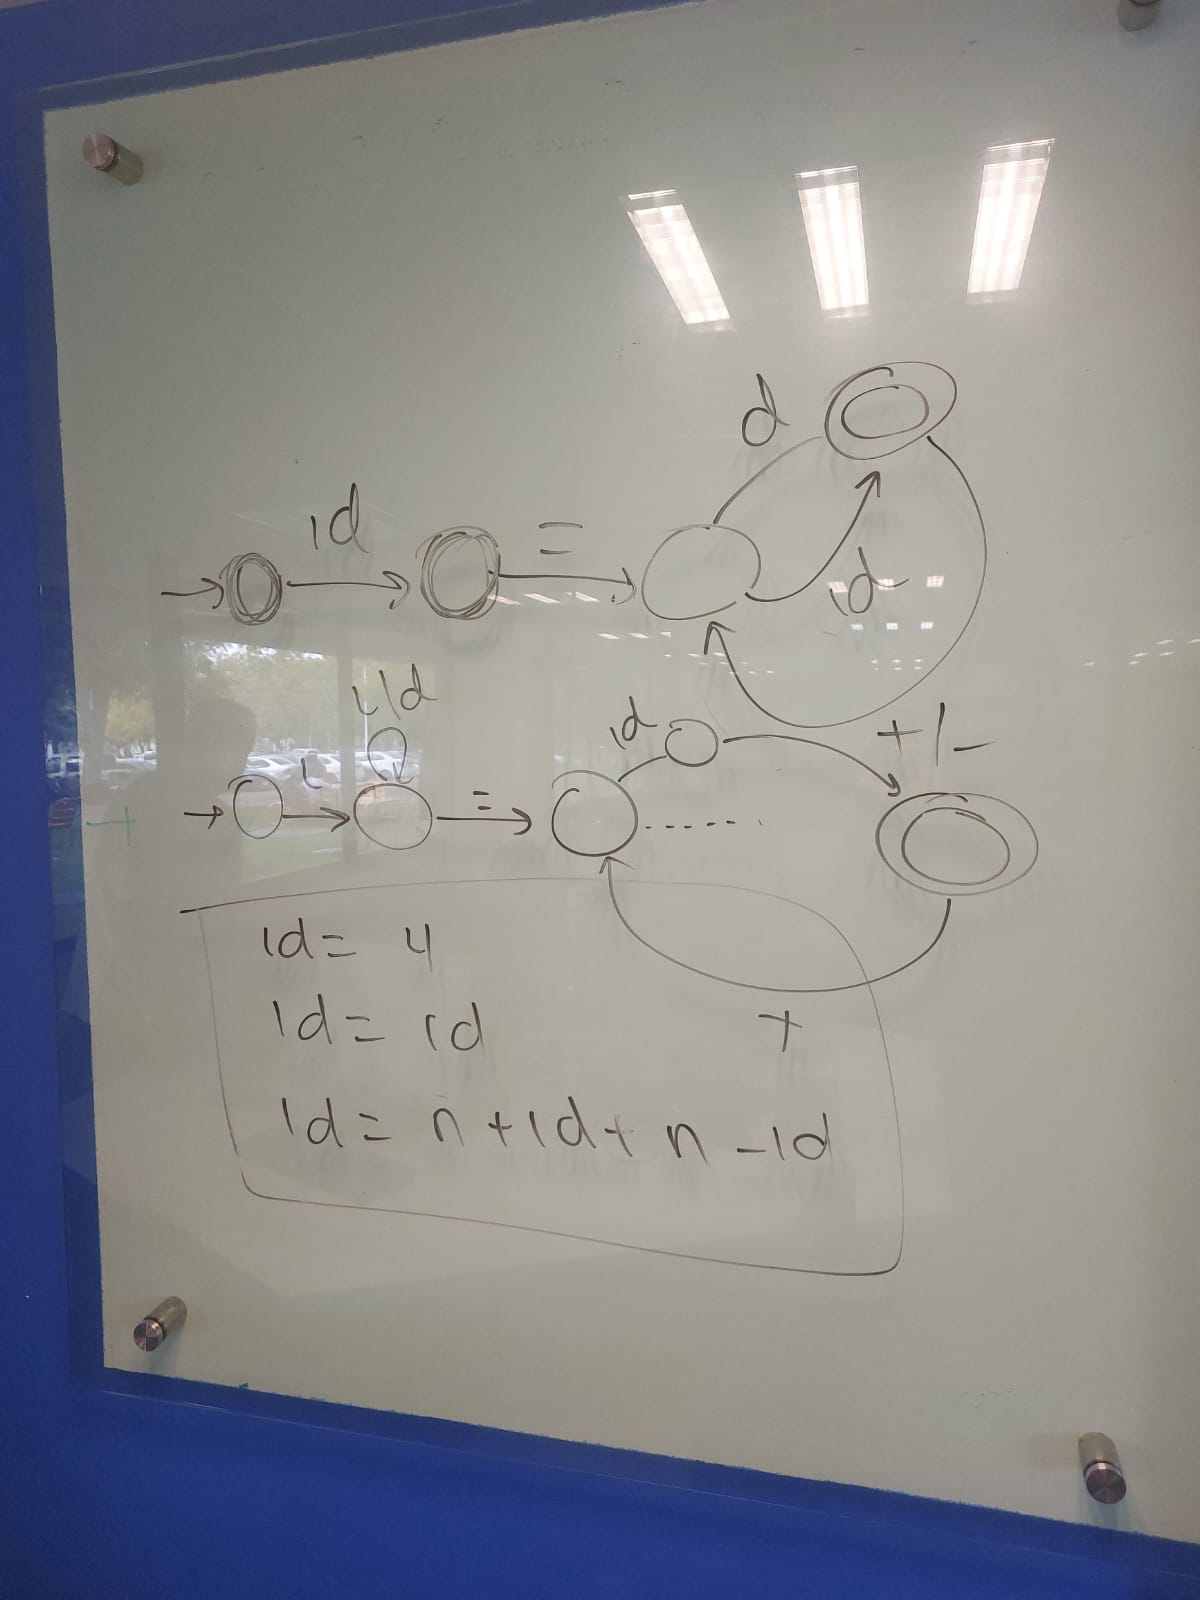 d
id =
id
L/d
id +/-
L =
+
id = 4
id = id
id = n + id + n - id